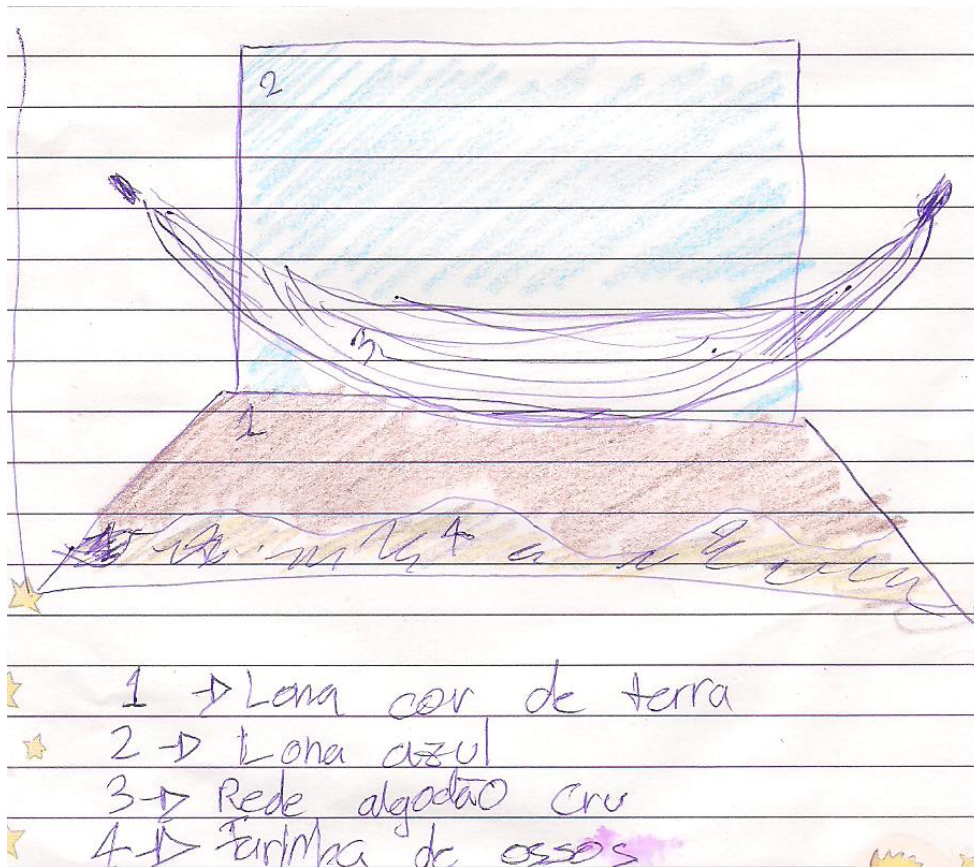 2
3
1
4
1 → Lona cor de terra
2 → Lona azul
3 → Rede algodão cru
4 → Farinha de ossos